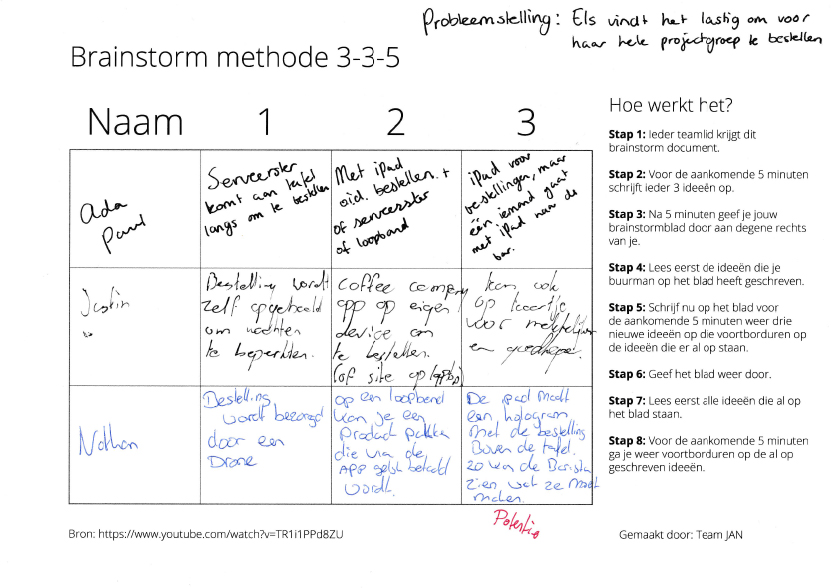 Probleemstelling: Els vindt het lastig om voor
haar hele projectgroep te bestellen
Brainstorm methode 3-3-5
Naam 1 2 3
Ada
Paul
Serveerster
komt aan tafel
langs om te bestellen
Met iPad
o.i.d. bestellen. +
of serveerster
of loopband
iPad voor
bestellingen, maar
één iemand gaat
met iPad naar de
bar.
Justin
Bestelling wordt
zelf opgehaald
om wachten
te beperken.
Coffee company
app op eigen
device om
te bestellen.
(of site op laptop)
kan ook
op kaartje
voor
en goedkope.
Nathan
Bestelling
wordt bezorgd
door een
Drone
op een loopband
kan je een
Product pakken
die via de
APP gelijk betaald
wordt.
De ipad maakt
een hologram
met de bestelling
Boven de tafel.
zo kan de Barista
zien wat ze moet
maken.
Potentie
Hoe werkt het?
Stap 1: Ieder teamlid krijgt dit
brainstorm document.
Stap 2: Voor de aankomende 5 minuten
schrijft ieder 3 ideeën op.
Stap 3: Na 5 minuten geef je jouw
brainstormblad door aan degene rechts
van je.
Stap 4: Lees eerst de ideeën die je
buurman op het blad heeft geschreven.
Stap 5: Schrijf nu op het blad voor
de aankomende 5 minuten weer drie
nieuwe ideeën op die voortborduren op
de ideeën die er al op staan.
Stap 6: Geef het blad weer door.
Stap 7: Lees eerst alle ideeën die al op
het blad staan.
Stap 8: Voor de aankomende 5 minuten
ga je weer voortborduren op de al op
geschreven ideeën.
Bron: https://www.youtube.com/watch?v=TR1i1PPd8ZU
Gemaakt door: Team JAN